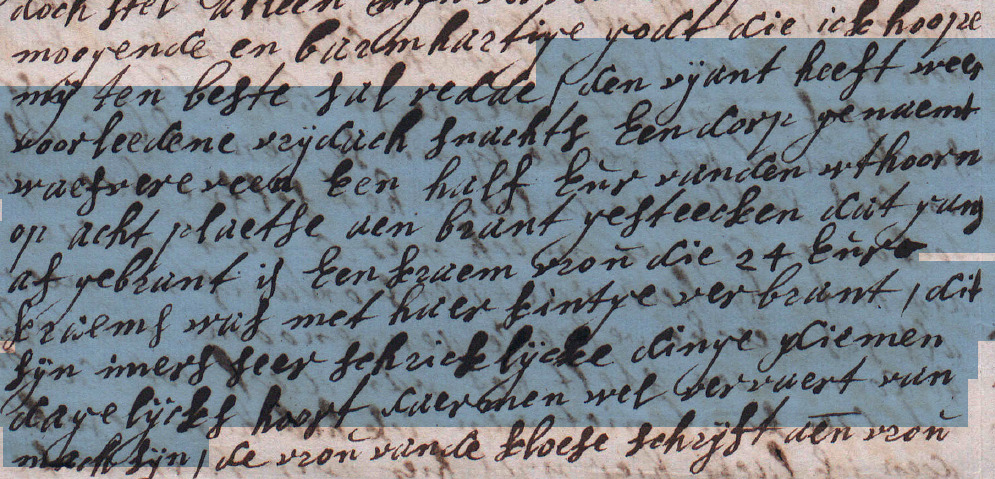 doch stel alleen mijn
moogende en barmhartige godt die ick hoope
mij ten beste sal redde / den vijant heeft weer
voorleedene vrijdach snachts Een dorp genaemt
waesvereveen Een half Eur vanden uthoorn
op acht plaetse aen brant gesteecken dat gans
af gebrant is Een kraem vrou die 24 Eure
kraems was met haer kintge verbrant / dit
sijn imers seer schricklijcke dinge diemen
dagelijcks hoort daermen wel vervaert van
mach sijn / de vrou vande kloese schrijft aen vrou